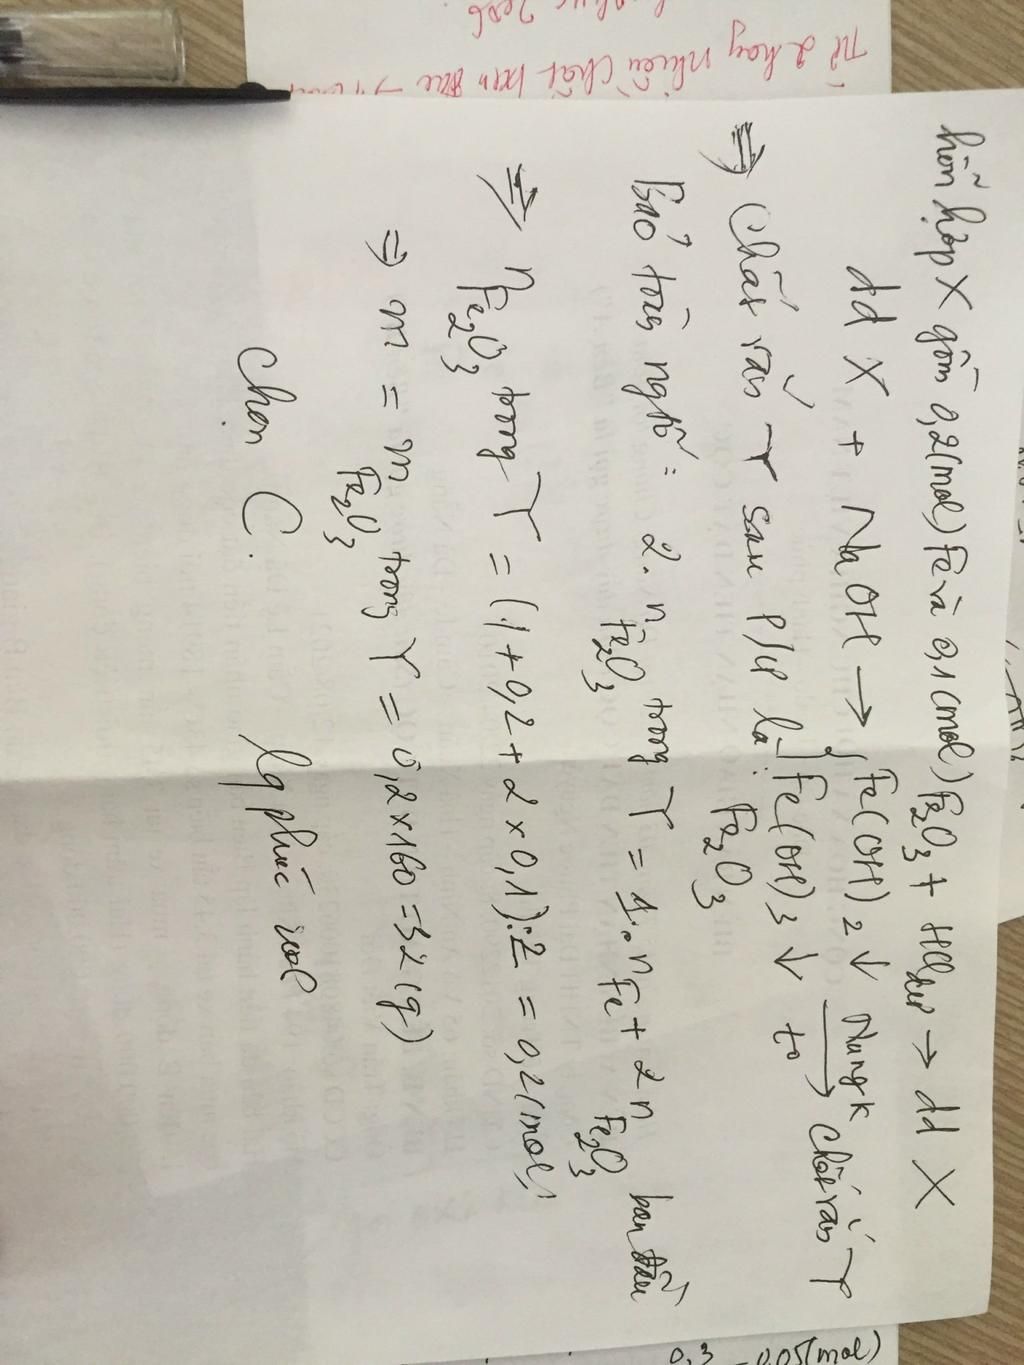 hỗn hợp X gồm 0,2(mol) Fe và 0,1(mol) Fe2O3 + HCl →dd X
dd X + NaOH → { Fe(OH)2 ↓ Nung k
Fe(OH)3 ↓ t° → chất rắn Y
⇒ Chất rắn Y sau p/ư là: Fe2O3
Bảo toàn ngtố: 2. nFe2O3 trong Y = 1. nFe + 2 nFe2O3 ban đầu
⇒ nFe2O3 trong Y = (1+0,2 + 2 x 0,1):2 = 0,2(mol)
⇒ m = mFe2O3 trong Y = 0,2x160 =32 (g)
Chọn C.
Từ 2 hay nhiều chất ban đầu →
0,3 0,05(mol)